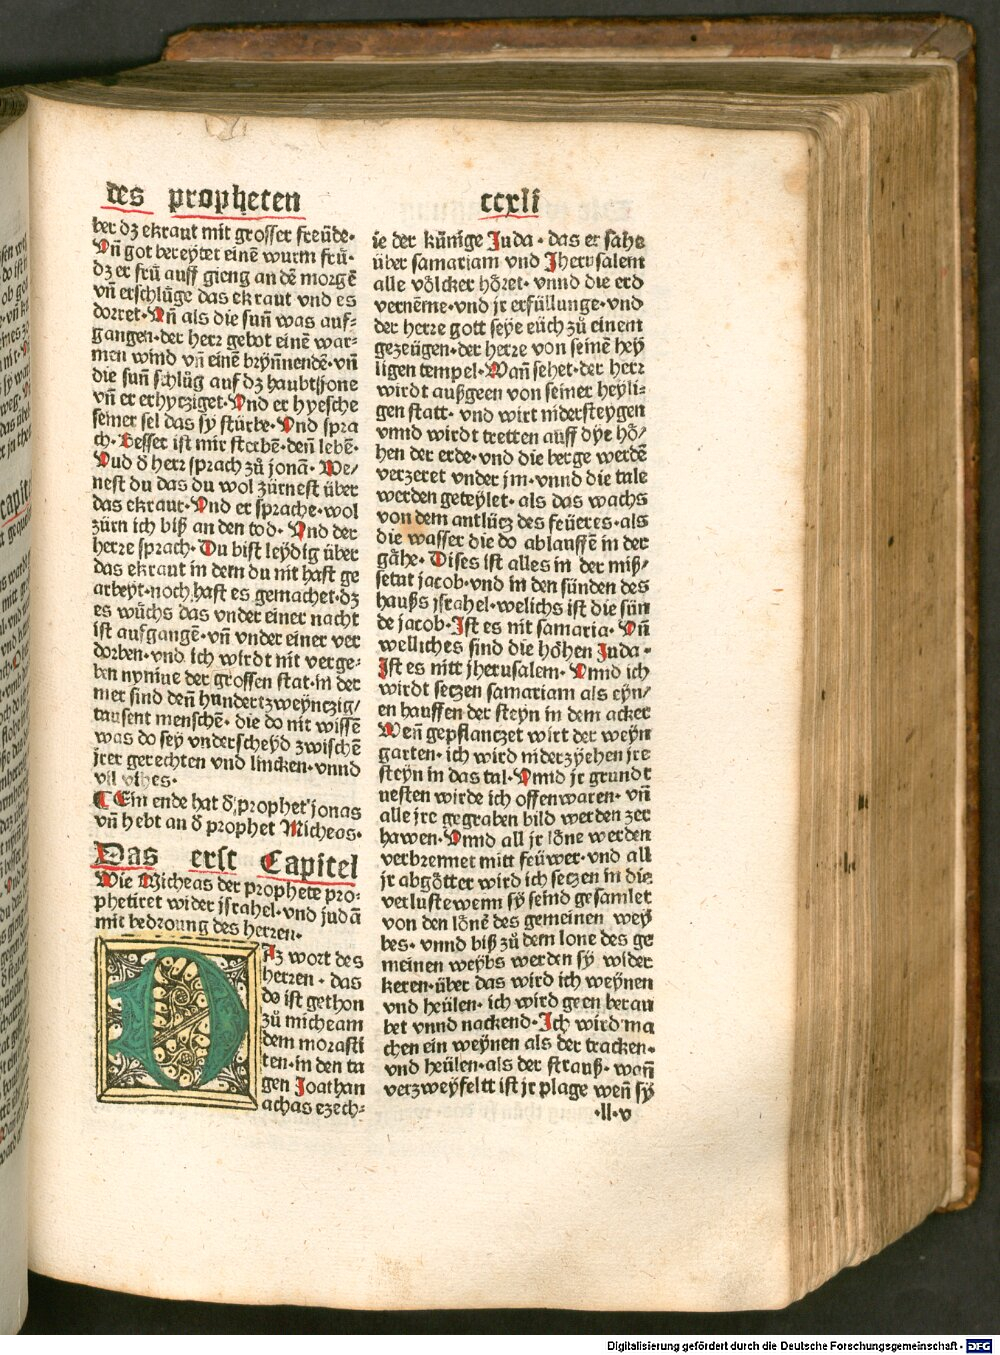 des propheten ccxli
ber dz ekraut mit grosser freüde·
Vñ got bereytet einẽ wurm frü·
dz er frü auff gieng an dẽ morgẽ
vñ erschlůge das ekraut vnd es
dorret· Vñ als die suñ was auf⸗
gangen· der herr gebot einẽ war⸗
men wind vñ einẽ brynnendẽ· vñ
die suñ schlůg auf dz haubt jone
vñ er erhytziget· Vnd er hyesche
seiner sel das sy stürbe· Vnd spra
ch· Besser ist mir sterbẽ· deñ lebẽ·
Vud d̕ herr sprach zů jonã· We⸗
nest du das du wol zürnest über
das ekraut· Vnd er sprache· wol
zürn ich biß an den tod· Vnd der
herre sprach· Du bist leydig über
das ekraut in dem du nit hast ge
arbeyt· noch hast es gemachet· dz
es wůchs das vnder einer nacht
ist aufgangẽ· vñ vnder einer ver
dorben· vnd ich wirdt nit verge⸗
ben nyniue der grossen stat· in der
mer sind deñ hundertzweyntzig⸗
tausent menschẽ· die do nit wissẽ
was do sey vnderscheyd zwischẽ
jrer gerechten vnd lincken· vnnd
vil vihes·
¶ Ein ende hat d̕ prophet jonas
vñ hebt an d̕ prophet Micheas·
Das erst Capitel
Wie Micheas der prophete pro⸗
phetiret wider jsrahel· vnd judã
mit bedroung des herren·
DAz wort des
herren · das
do ist gethon
zů micheam
dem morasti
ten· in den ta
gen Joathan
achas ezech⸗
ie der künige Juda · das er sahe
über samariam vnd Jherusalem
alle völcker höret· vnnd die erd
vernẽme· vnd jr erfüllunge· vnd
der herre gott seye eüch zů einem
gezeügen· der herre von seinẽ hey
ligen tempel· Wañ sehet· der herr
wirdt außgeen von seiner heyli⸗
gen statt· vnd wirt nidersteygen
vnnd wirdt tretten auff dye hö⸗
hen der erde· vnd die berge werdẽ
verzeret vnder jm· vnnd die tale
werden geteylet· als das wachs
von dem antlütz des feüeres· als
die wasser die do ablauffẽ in der
gähe· Dises ist alles in der miß⸗
setat jacob· vnd in den sünden des
hauß jsrahel· welichs ist die sün
de jacob· Ist es nit samaria· Vñ
welliches sind die höhen Juda·
Ist es nitt jherusalem· Vnnd ich
wirdt setzen samariam als eyn⸗
en hauffen der steyn in dem acker
Weñ gepflanczet wirt der weyn
garten· ich wird niderzyehen jre
steyn in das tal· Vnnd jr grundt
uesten wirde ich offenwaren· vñ
alle jre gegraben bild werden zer
hawen· Vnnd all jr löne werden
verbrennet mitt feüwer· vnd all
jr abgötter wird ich setzen in die
verluste wenn sy seind gesamlet
von den lönẽ des gemeinen wey
bes· vnnd biß zů dem lone des ge
meinen weybs werden sy wider
keren· über das wird ich weynen
vnd heülen· ich wird geen berau
bet vnnd nackend· Ich wird ma
chen ein weynen als der tracken·
vnd heülen· als der strauß· wañ
verzweyfeltt ist jr plage weñ sy
·ll·v
Digitalisierung gefördert durch die Deutsche Forschungsgemeinschaft - DFG